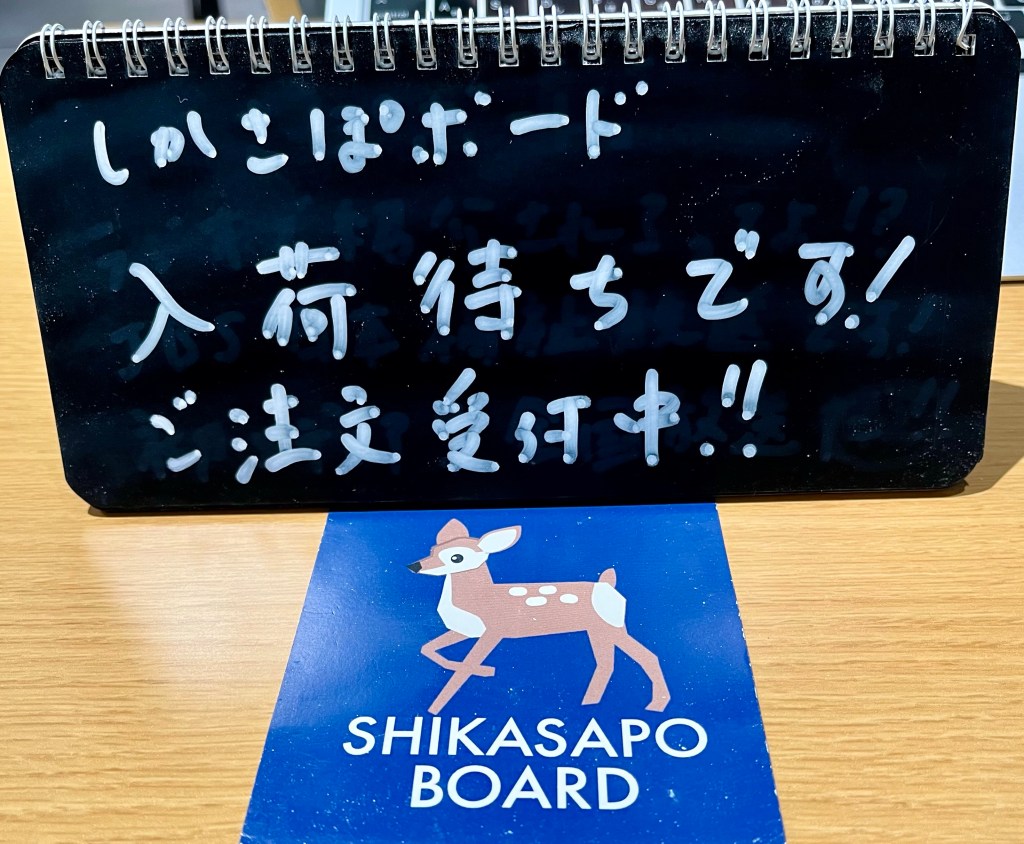 しかさぽボード
入荷待ちです!
ご注文受付中!!
SHIKASAPO
BOARD